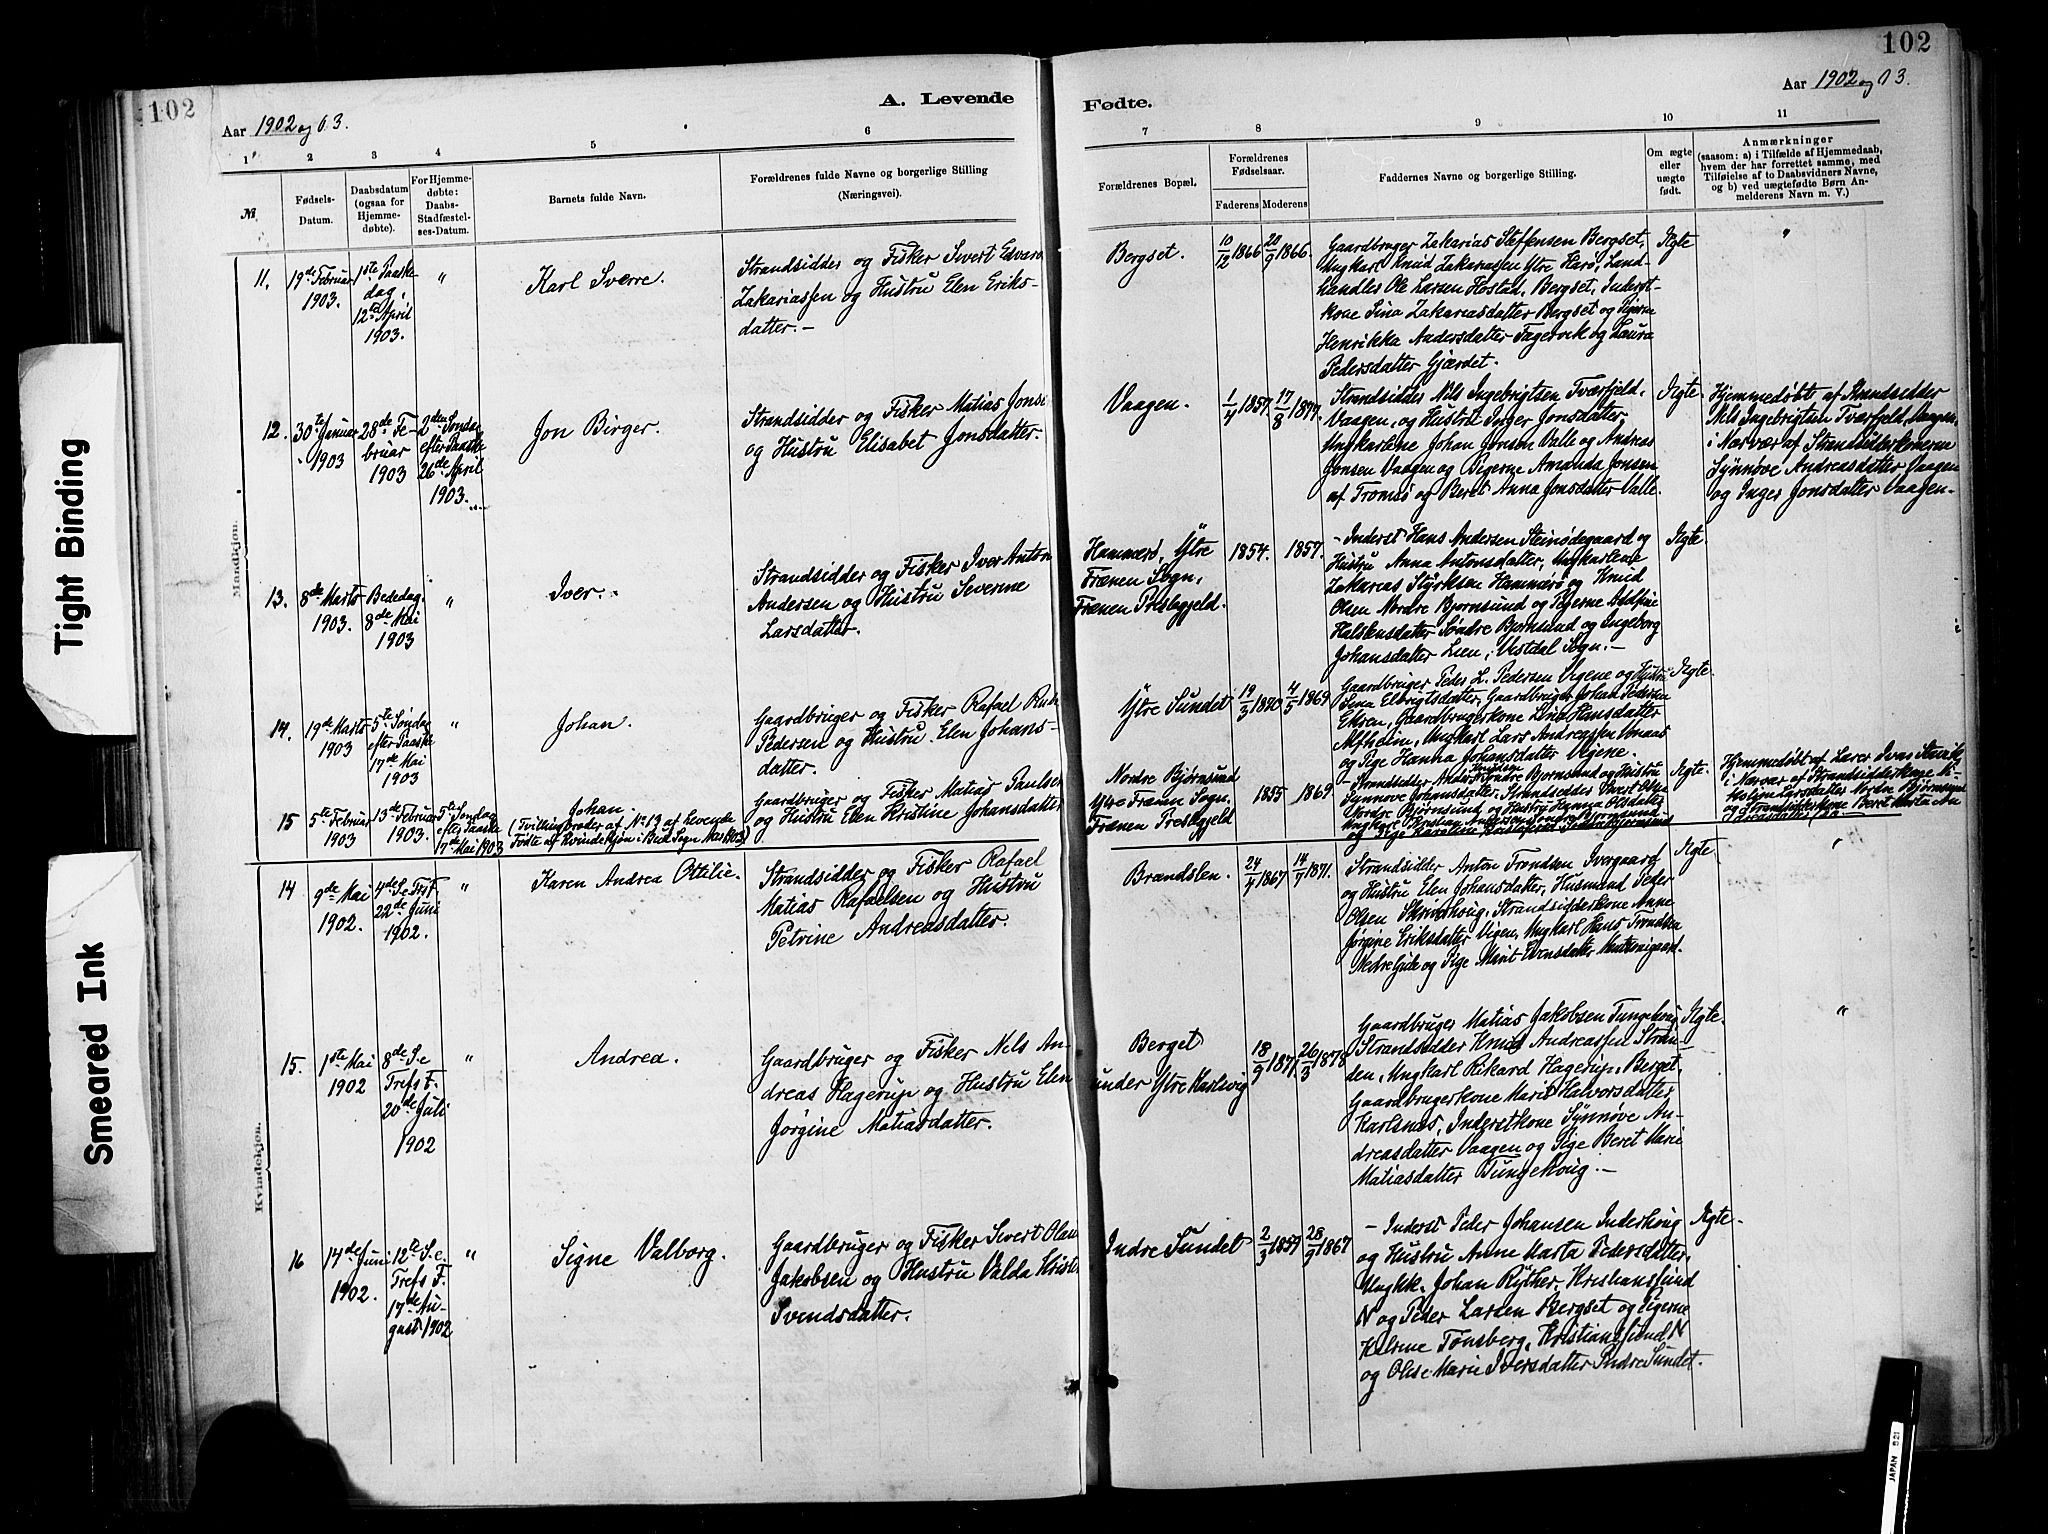 102
102
A. Levende
Fødte.
Aar 1902 og 03.
Aar 1902 og 03.
1 2 3 4 5 6
7 8 9 10 11
№
Fødsels-
Datum.
Daabsdatum
(ogsaa for
Hjemme-
døbte).
For Hjemme-
døbte:
Daabs-
Stadfæstel-
ses-Datum.
Barnets fulde Navn.
Forældrenes fulde Navne og borgerlige Stilling
(Næringsvei).
Forældrenes Bopæl.
Forældrenes
Fødselsaar.
Faderens Moderens
Faddernes Navne og borgerlige Stilling.
Om ægte
eller
uægte
født.
Anmærkninger
(saasom: a) i Tilfælde af Hjemmedaab,
hvem der har forrettet samme, med
Tilføielse af to Daabsvidners Navne,
og b) ved uægtefødte Børn An-
melderens Navn m. V.)
Mandkjøn.
11.
19de Februar
1903.
1ste Paaske-
dag,
12te April
1903.
"
Karl Sverre.
Strandsidder og Fisker Sivert Edvard
Zakariassen og Hustru Elen Eriks-
datter.-
Bergset.
10/12 1866
20/9 1866.
Gaardbruger Zakarias Steffensen Bergset,
Ungkarl Knud Zakariassen Ytre Harø, Land-
handler Ole Larsen Hostad, Bergset, Inderst-
kone Sina Zakariasdatter Bergset og Pigerne
Henrikka Andersdatter Fagervik og Laura
Pedersdatter Gjærdet.
Ægte
"
12.
30te Januar
1903
28de Fe-
bruar
1903
2den Søndag
efter Paaske
26de April
1903.
Jon Birger.
Strandsidder og Fisker Matias Jonsen
og Hustru Elisabet Jonsdatter.
Vaagen.
1/4 1857.
17/8 1877.
Strandsidder Nils Ingebrigtsen Tværfjeld,
Vaagen, og Hustru Inger Jonsdatter,
Ungkarlene Johan Jonsen Valle og Andreas
Jonsen Vaagen og Pigerne Amanda Jonsen
af Tromsø og Beret Anna Jonsdatter Valle.
Ægte.
Hjemmedøbt af Strandsidder
Nils Ingebrigtsen Tværfjeld, Vaagen,
i Nærvær af Strandsidderkonerne
Synnøve Andreasdatter Vaagen
og Inger Jonsdatter Vaagen-
13.
8de Marts
1903.
Bededag,
8de Mai
1903
"
Iver.
Strandsidder og Fisker Iver Anton
Andersen og Hustru Severine
Larsdatter.
Hammerø, Ytre
Frænen Sogn,
Frænen Prestegjeld.
1854.
1857.
- Inderst Hans Andersen Steinsødegaard og
Hustru Anna Antonsdatter, Ungkarlene
Zakarias Styrksen Hammerø og Knud
Olsen Nordre Bjørnsund og Pigerne
Halstensdatter Søndre Bjørnsund og Ingeborg
Johansdatter Lien, Vestdal Sogn.-
Ægte.
14.
19de Marts
1903
5te Søndag
efter Paaske
17de Mai
1903
"
Johan.
Gaardbruger og Fisker Rafael
Pedersen og Hustru Elen Johans-
datter.
Ytre Sundet
19/3
4/5 1869
Gaardbruger Peder L. Pedersen Vigene og Hustru
Sina Elbrigtsdatter, Gaardbruger Johan Pedersen
Ekren, Gaardbrugerkone Lina Hansdatter
Alfheim, Ungkarl Lars Andreassen
og Pige Hanna Johansdatter Vigene.
Ægte.
15
5te Februar
1903
13de Februar
1903.
5te Søndag
efter Paaske
7de Mai 1903
Johan.
(Tvillingbroder af Nr 13 af Levende
Fødte af Kvindekjøn i Bud Sogn
Gaardbruger og Fisker Matias Paulsen
og Hustru Elen Kristine Johansdatter
Nordre Bjørnsund
Ytre Frænen Sogn,
Frænen Prestegjeld
1855
1869
- Strandsidder Anders Søndre Bjørnsund og Hustru
Synnøve Johansdatter, Strandsidder Sivert Olsen
Nordre Bjørnsund og Hustru Hanna Olsdatter
Ægte.
Hjemmedøbt af Lærer
i Nærvær af Strandsidderkone
Larsdatter Nordre Bjørnsund
og Strandsidderkone Beret Marta An-
dreasdatter
Kvindekjøn.
14
9de Mai
1902.
4de S.e. Tref.
22de Juni
1902.
"
Karen Andrea Ottilie.
Strandsidder og Fisker Rafael
Matias Rafaelsen og Hustru
Petrine Andreasdatter.
Brændslen.
24/4 1867
14/7 1871.
Strandsidder Anton Trondsen Ivergaard
og Hustru Elen Johansdatter, Husmand Peder
Olsen Skriverhoug, Strandsidderkone Anne
Jørgine Eriksdatter Vigen, Ungkarl Hans Trondsen
Nedre Gule og Pige Marit Evensdatter
Ægte
"
15.
1ste Mai
1902
8de S.e
Tref. F.
20de Juli
1902
"
Andrea.
Gaardbruger og Fisker Nels An-
dreas Hagerup og Hustru Elen
Jørgine Matiasdatter.
Berget
under Ytre Harlevig
18/9 1877.
26/3 1878
Gaardbruger Matias Jakobsen Tungehoug,
Strandsidder Knud Andreassen Stran-
den, Ungkarl Rikard Hagerup, Berget,
Gaardbrugerkone Marit Halvorsdatter
Karlsnes, Inderstkone Synnøve An-
dreasdatter Vaagen og Pige Beret Marie
Matiasdatter Tungehoug.-
Ægte.
"
16
14de Juni
1902.
12te S.e.
Tref. F.
17de Au-
gust 1902
"
Signe Valborg.
Gaardbruger og Fisker Sivert Olaus
Jakobsen og Hustru Valda
Svendsdatter.
Indre Sundet
2/3 1859
28/9 1867
- Inderst Peder Johansen Inderhoug
og Hustru Anne Marta Pedersdatter,
Ungkk. Johan Ryther, Kristiansund
N og Peder Larsen Bergset og Pigerne
Tønsberg, Kristiansund N
og Oline Marie Iversdatter Indre Sundet.
Ægte.
Tight Binding
Smeared Ink
JAPAN 521